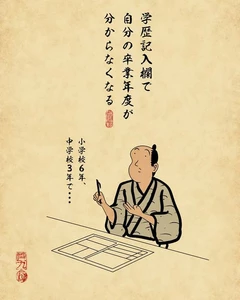 学歴記入欄で
自分の卒業年度が
分からなくなる
小学校6年、
中学校3年で…